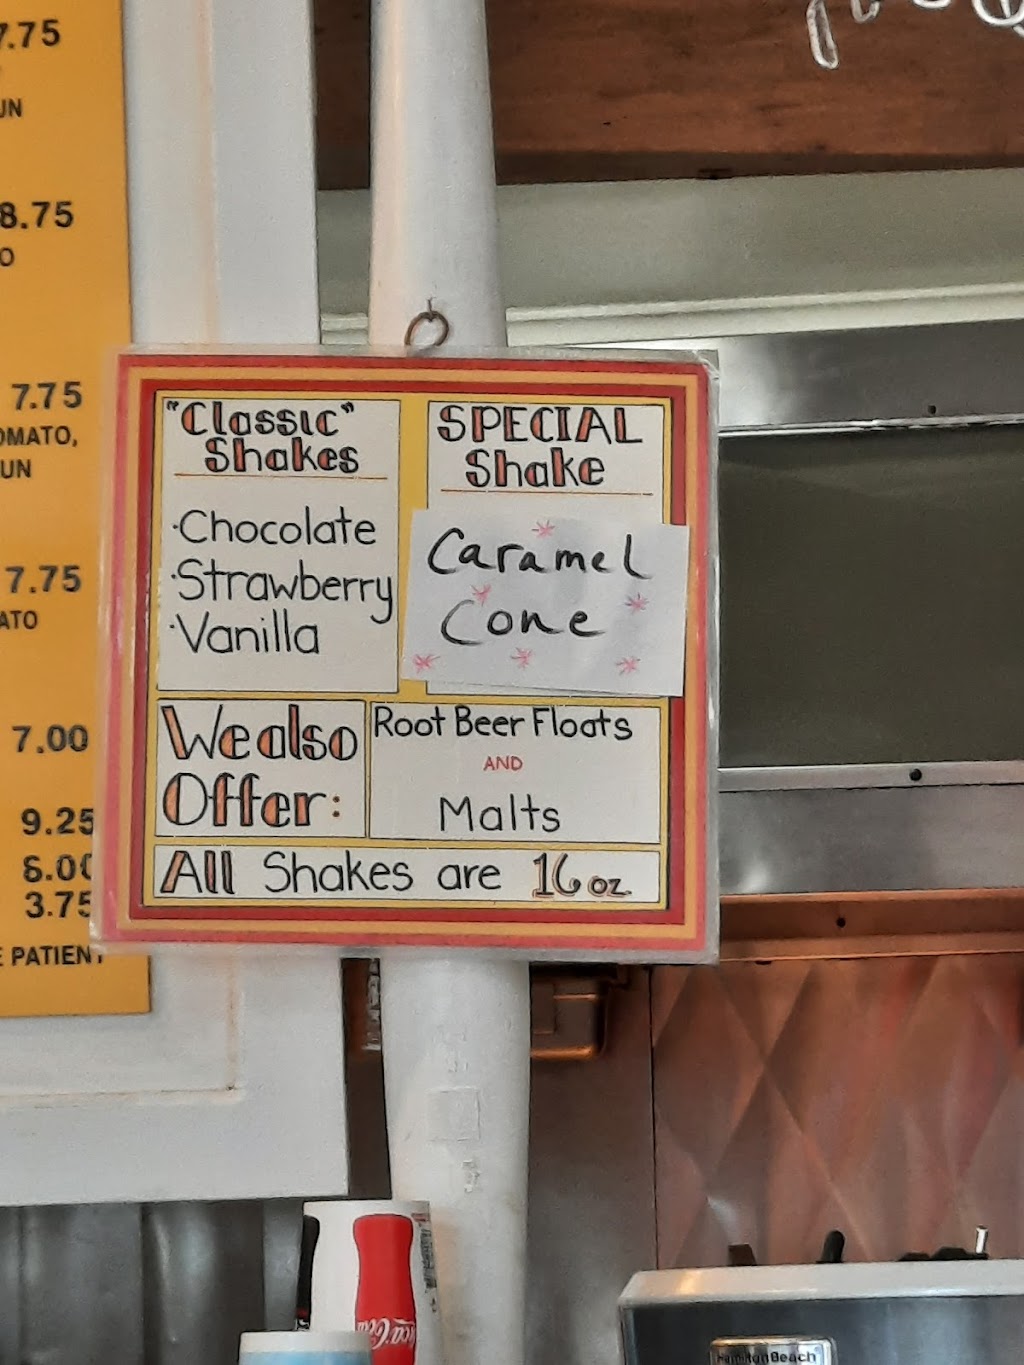 7.75
UN
8.75
O
7.75
OMATO,
UN
7.75
ATO
7.00
9.25
6.00
3.75
E PATIENT
"Classic"
Shakes
·Chocolate
·Strawberry
·Vanilla
SPECIAL
Shake
Caramel
Cone
We also
Offer:
Root Beer Floats
AND
Malts
All Shakes are 16 oz
Hamilton Beach